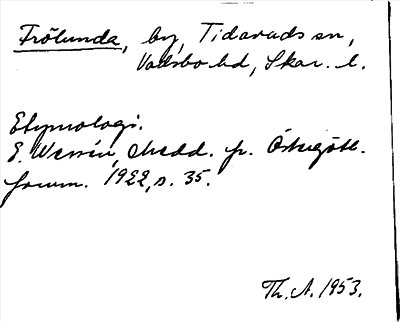 Frölunda, by, Tidavads sn,
Vadsbo hd, Skar. l.
Etymologi.
E. Wessén, Medd. fr. Östergötl.
fornm. 1922, s. 35.
Th. A. 1953.